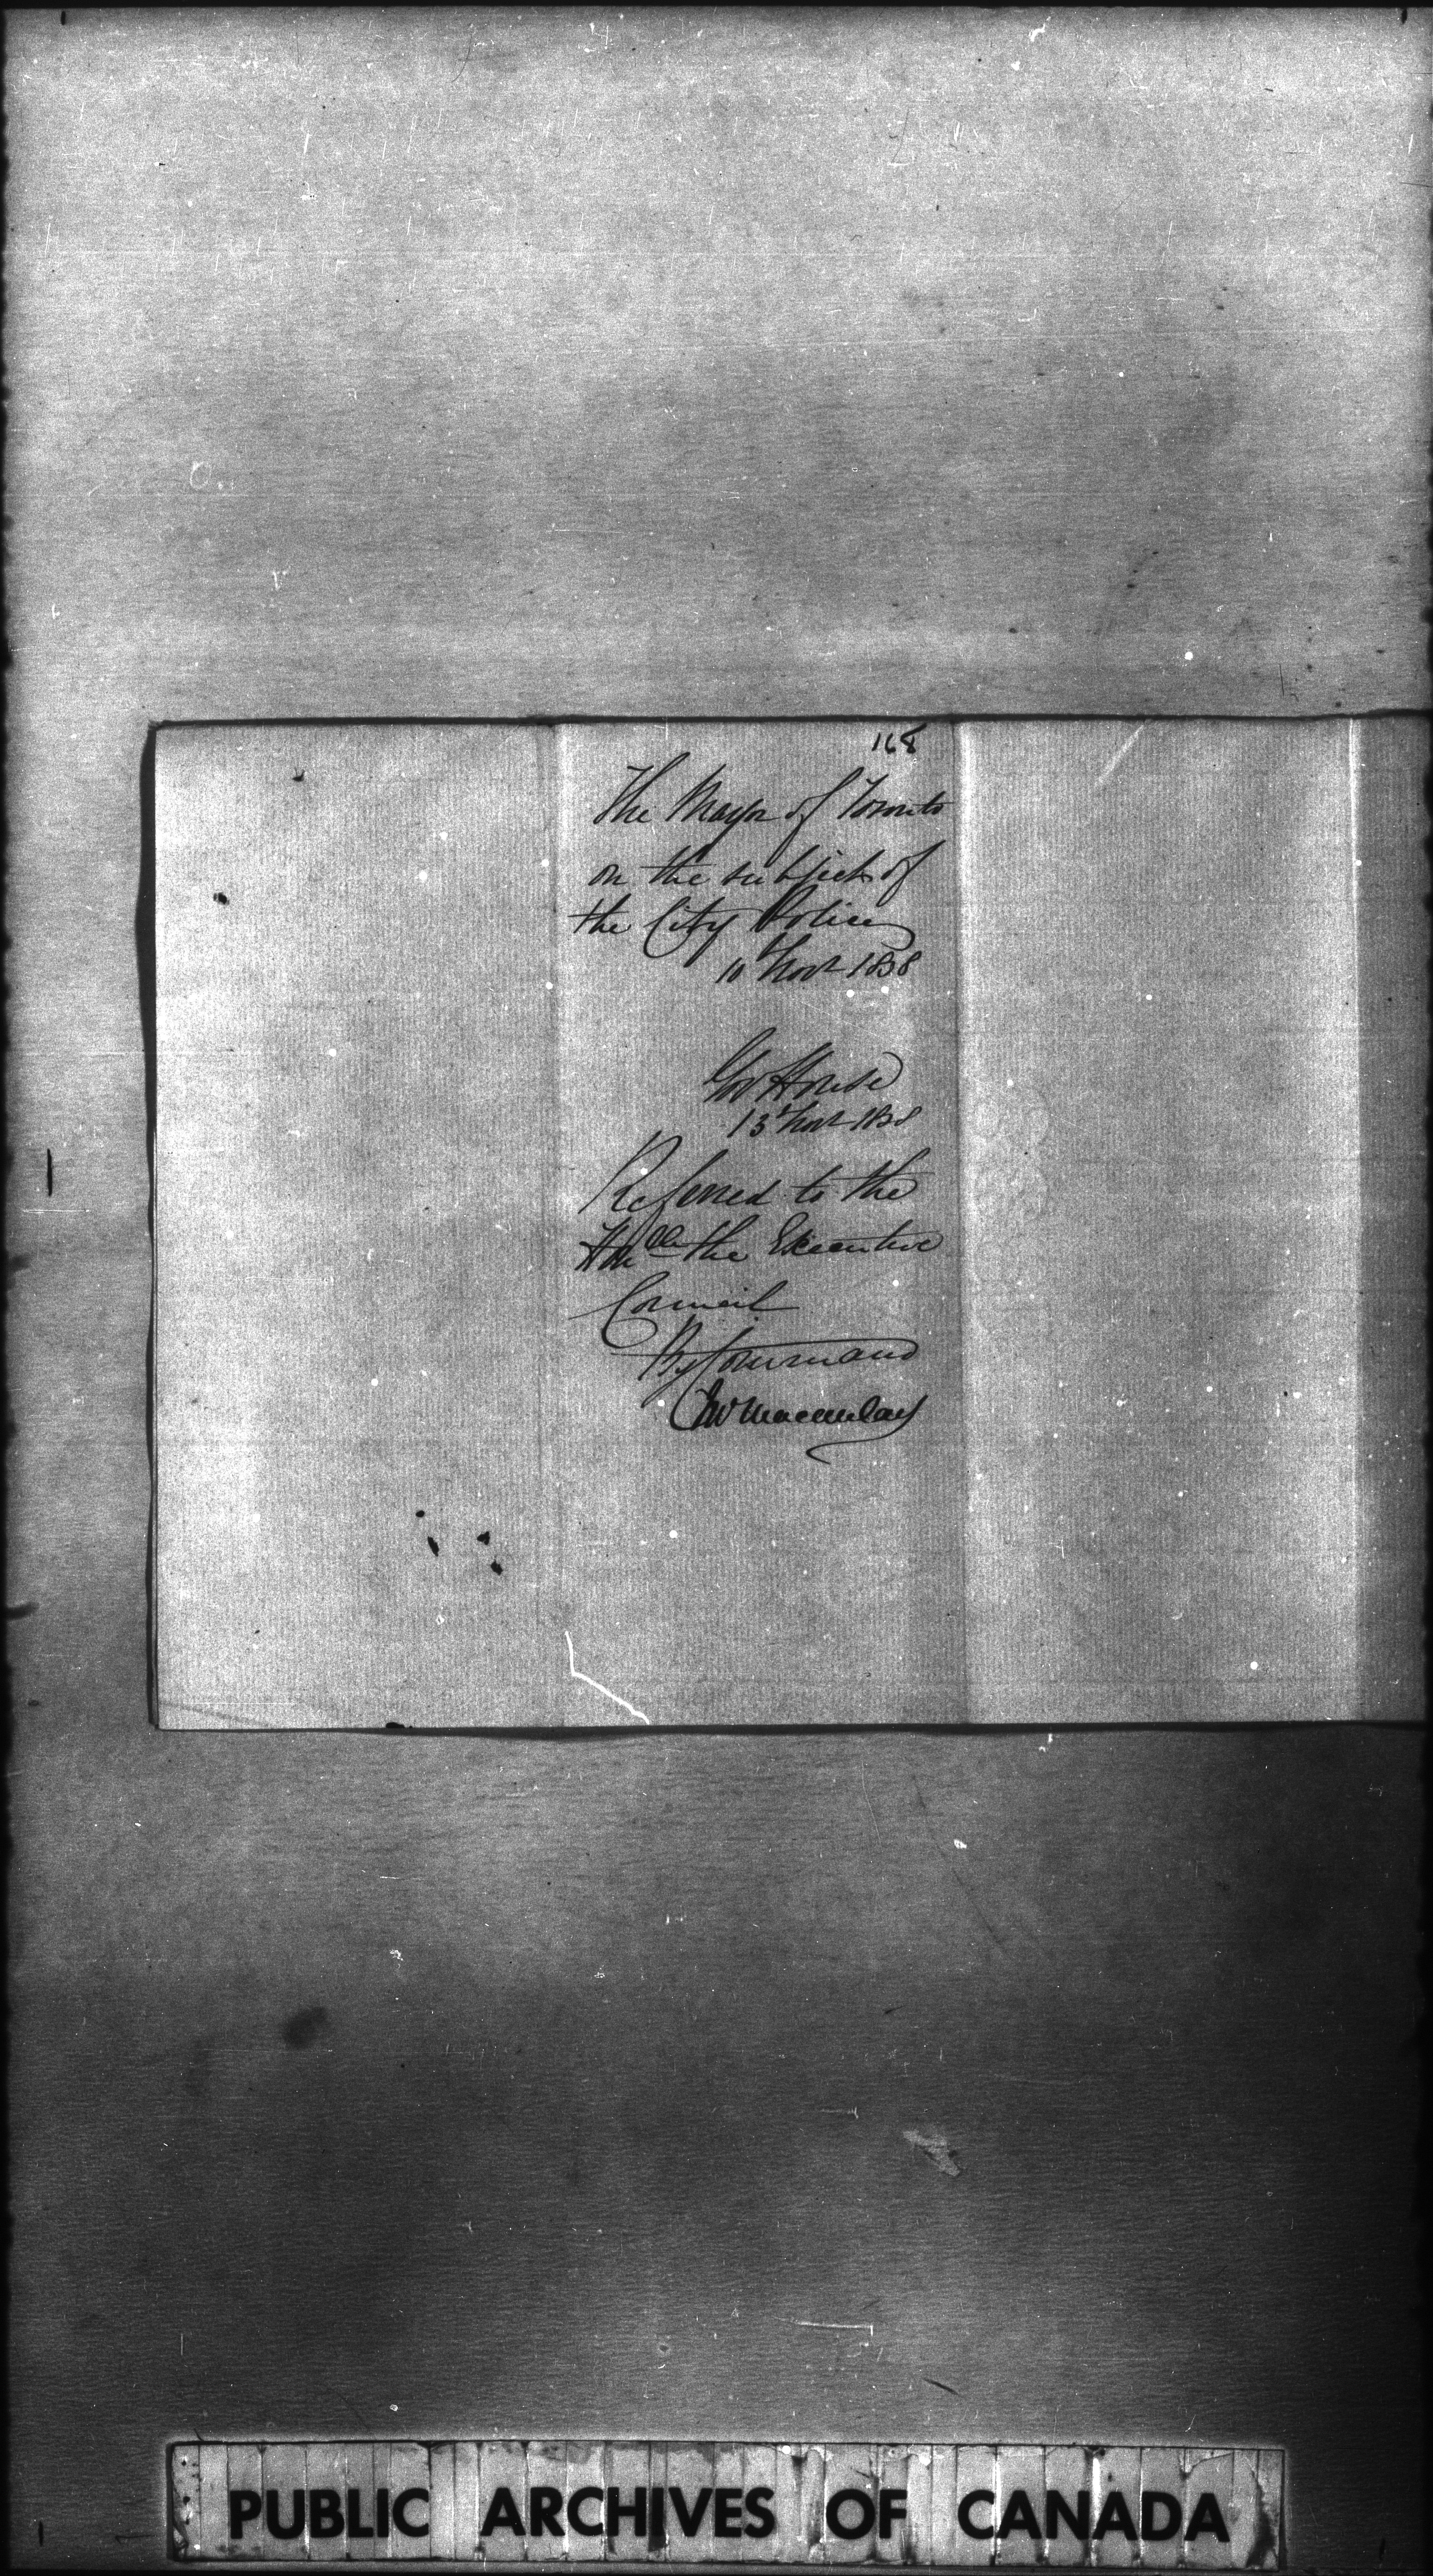 168
The Mayor of Toronto
on the subject of
the City Police
10 Novr 1838
Gov House
13 Novr 1838
Referred to the
Honble the Executive
Council
By Command
Jno Macaulay
PUBLIC ARCHIVES OF CANADA